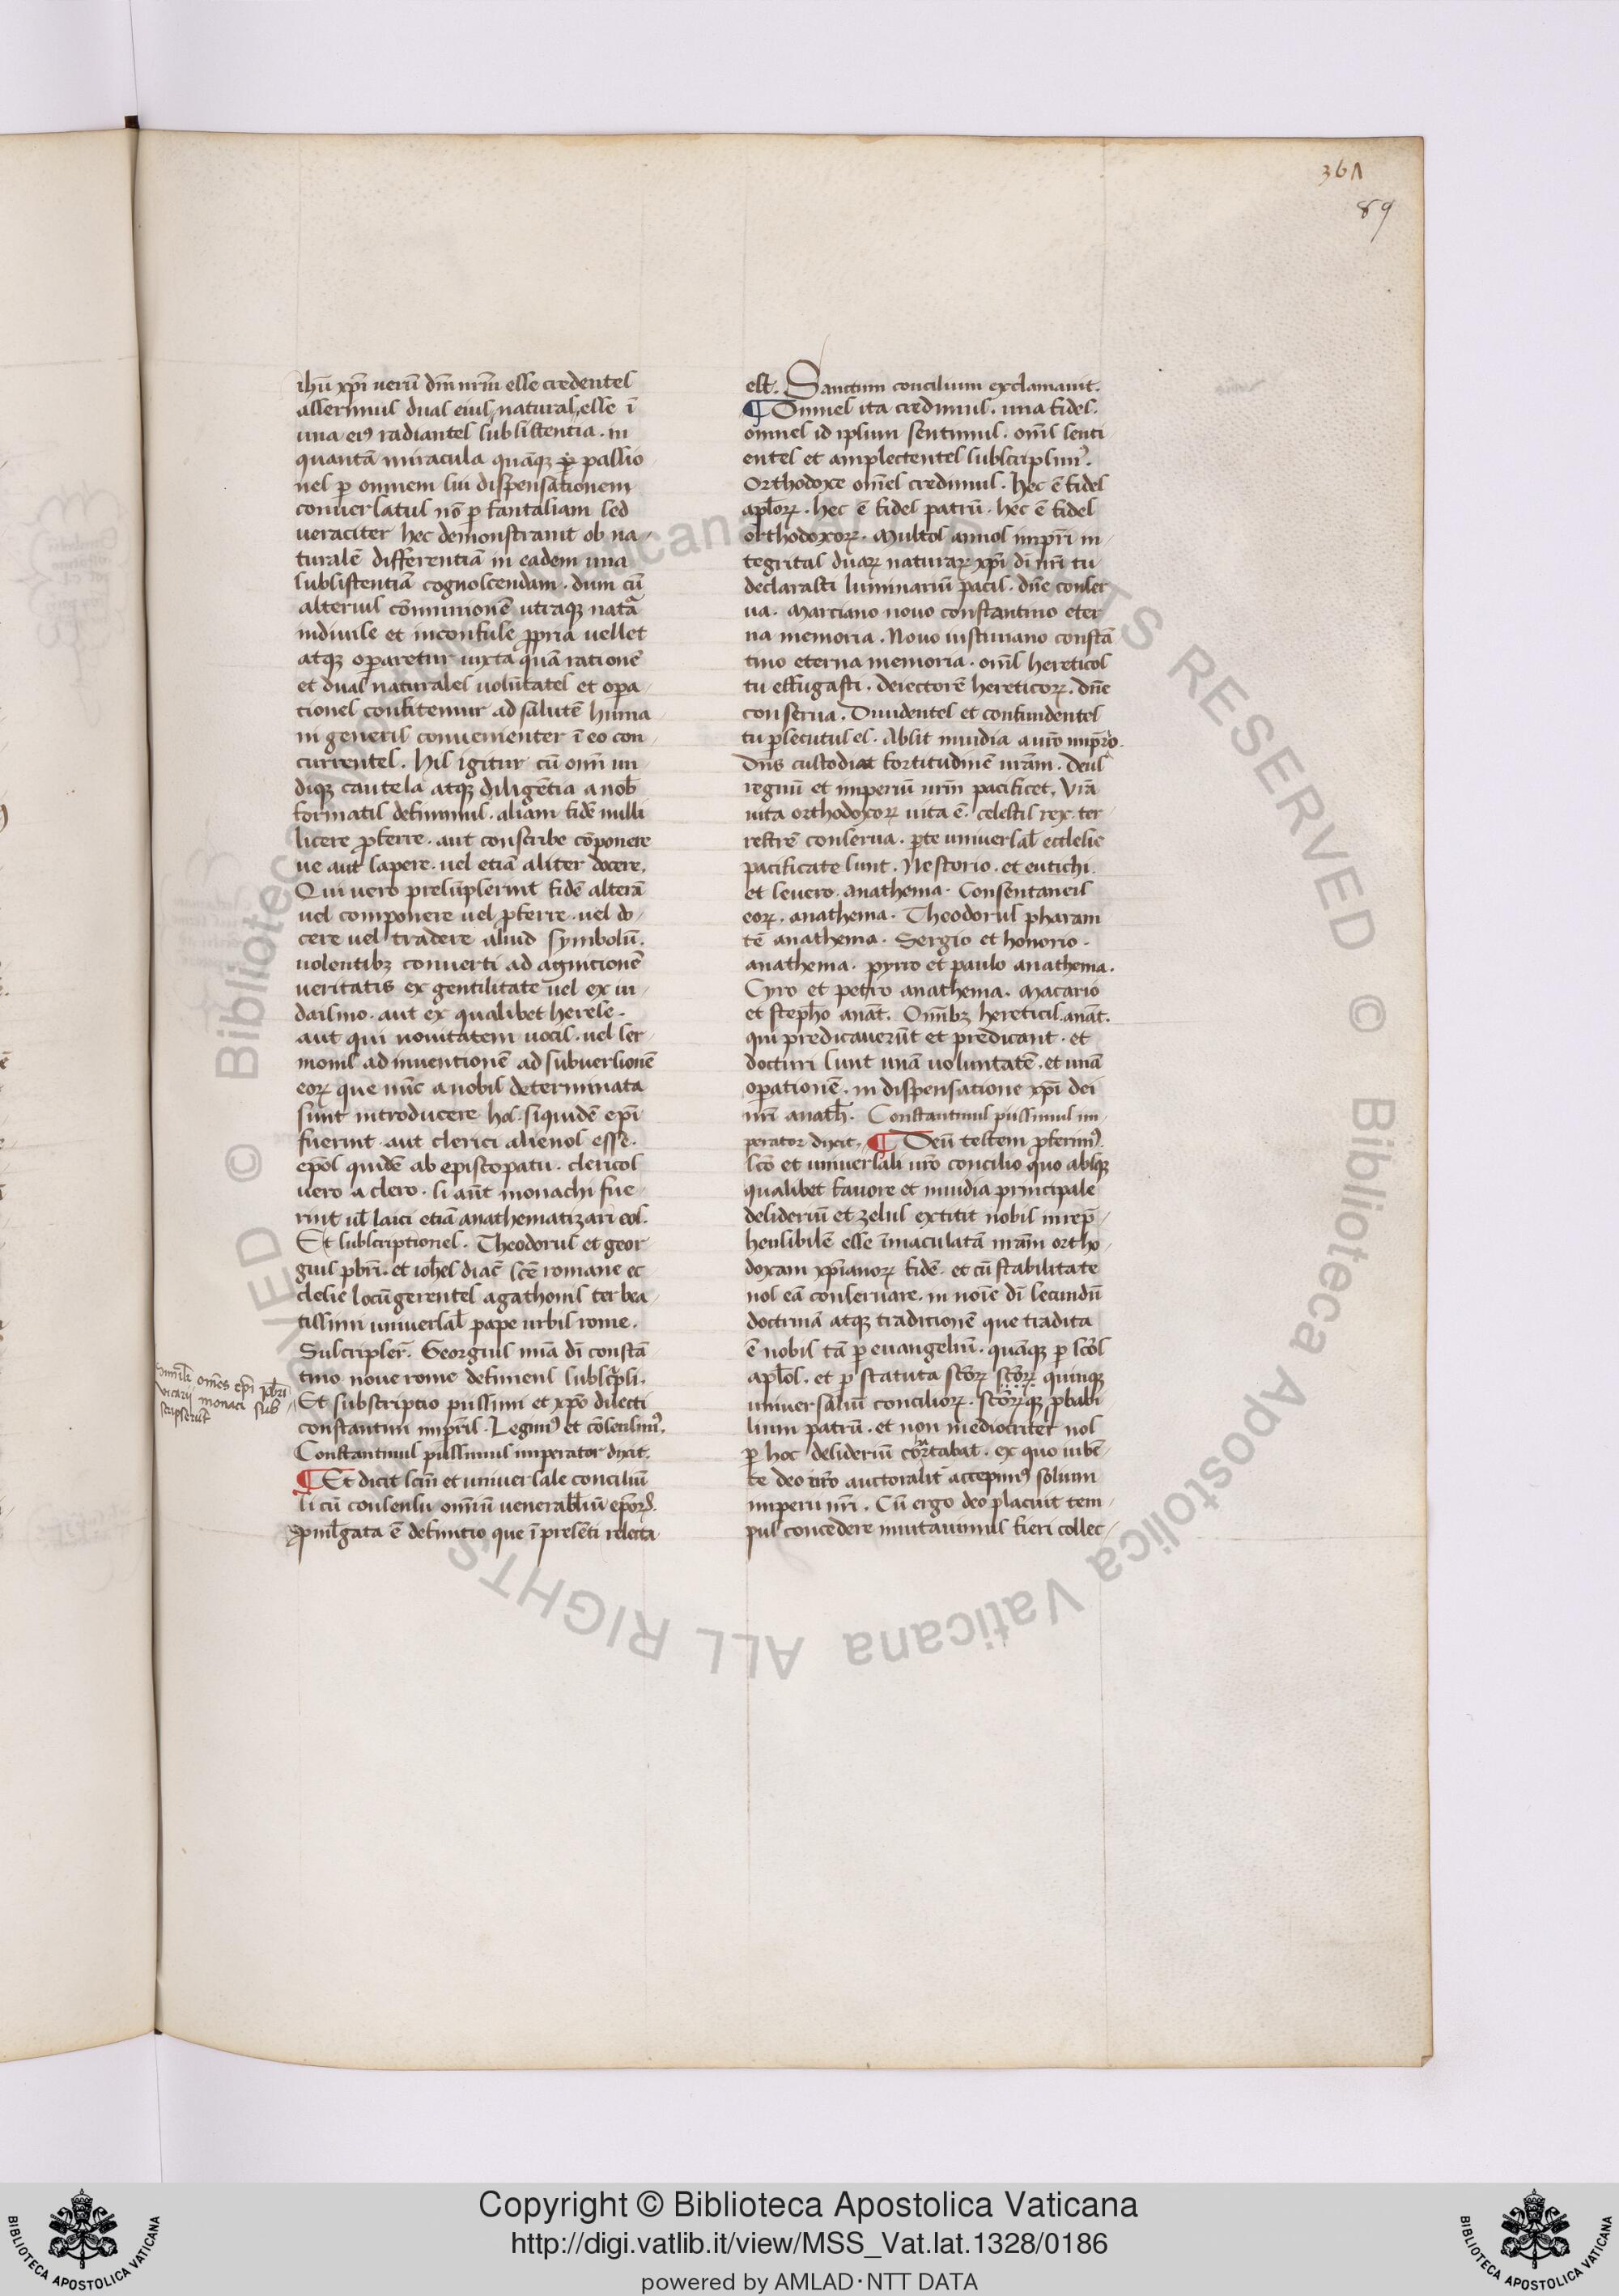 361
89
ihū xp̄i uerū dm̄ nr̄m esse credentes
asserimus duas eius naturas esse ī
una eiꝰ radiantes subsistentia . in
quantā miracula quāqꝫ ꝑ passio
nes ꝑ omnem sui dispensationem
conuersatus nō ꝑ fantasiam sed
ueraciter hec demonstrauit ob na-
turalē differentiā in eadem una
subsistentiā cognoscendam . dum cū
alterius cōmunionē utraqꝫ natᵃ
indiuise et inconfuse ꝓpria uellet
atqꝫ oꝑaretur iuxta quā rationē
et duas naturales uolūtates et oꝑa-
tiones confitemur ad salutē huma
ni generis conuenienter ī eo con-
currentes . His igitur cū omī un-
diqꝫ cautela atqꝫ diligētia a nob̄
formatis definimus . aliam fidē nulli
licere ꝓferre . aut conscribe cōponere
ue aut sapere . uel etiā aliter docere.
Qui uero presūpserint fidē alterā
uel componere uel ꝓferre . uel do-
cere uel tradere aliud symbolū.
uolentibꝫ conuerti ad agnitionē
ueritatis ex gentilitate uel ex iu-
daismo . aut ex qualibet herese .
aut qui nouitatem uocis . uel ser-
monis ad inuentionē ad subuersionē
eoꝝ que nūc a nobis determinata
sunt introducere hos . siquidē ep̄i
fuerint . aut clerici alienos esse .
ep̄os quidē ab episcopatu . clericos
uero a clero . si aūt monachi fue-
rint ul̄ laici etiā anathematizari eos.
Et subscriptiones . Theodorus et geor
gius pbr̄i . et ioh̄es diac̄ sc̄e romane ec
clesie locūgerentes agathonis ter bea-
tissimi uniuersal̄ pape urbis rome .
Suscripser̄ . Georgius miā dī constā
tino noue rome definiens subscripsi.
Et subscriptio piissimi et xp̄o dilecti
constantini impr̄is . Legimꝰ et cōsensimꝰ.
Constantinus piissimus imperator dixit.
¶ Et dicit sc̄m et uniuersale conciliū
si cū consensu omīū uenerabl̄iū ep̄oꝝ.
ꝓmul̄gata ē definitio que ī presēti relecta
omēs ep̄i pbr̄i
uicarii monaci sub
scripserūt
est . Sanctum concilium exclamauit.
¶ Omnes ita credimus . una fides.
omnes id ipsum sentimus . omīs senti
entes et amplectentes subscripsimꝰ.
Orthodoxe omēs credimus . hec ē fides
apl̄oꝝ . hec ē fides patrū . hec ē fides
orthodoxoꝝ . Multos annos impr̄i in-
tegritas duaꝝ naturaꝝ xp̄i dī nr̄i tu
declarasti luminariū pacis . dn̄e conser
ua . Marciano nouo constantino eter
na memoria . Nouo iustiniano constā
tino eterna memoria . omīs hereticos
tu effugasti . deiectorē hereticoꝝ . dn̄e
conserua . Diuidentes et confundentes
tu ꝑsecutus es . Absit inuidia a uro impr̄o.
Dn̄s custodiat fortitudinē ur̄am . deus
regnū et imperiū ur̄m pacificet . Vr̄a
uita orthodoxoꝝ uita ē . celestis rex ter-
restrē conserua . ꝑ te uniuersal̄ ecclesie
pacificate sunt . Nestorio . et eutichi.
et seuero . anathema . Consentaneis
eoꝝ . anathema . Theodorus pharam
tē anathema . Sergio et honorio .
anathema . pyrro et paulo anathema .
Cyro et petro anathema . Macario
et steph̄o anat̄ . Omībꝫ hereticis . anat̄.
qui predicauerūt et predicant . et
docturi sunt unā uoluntatē . et unā
oꝑationē . in dispensatione xp̄i dei
nr̄i anath̄ . Constantinus piissimus im-
perator dixit . ¶ Deū testem ꝓferimꝰ.
sc̄o et uniuersali ur̄o concilio quo absqꝫ
qualibet fauore et inuidia principale
desideriū et zelus extitit nobis irrep̄-
hensibilē esse īmaculatā nr̄am ortho-
doxam xp̄ianoꝝ fidē . et cū stabilitate
nos eā conseruare . in noīe dī secundū
doctrinā atqꝫ traditionē que tradita
ē nobis tā ꝑ euangeliū . quāqꝫ ꝑ sc̄os
apl̄os . et ꝑ statuta sc̄oꝝ sc̄oꝝ quinqꝫ
uniuersaliū concilioꝝ . sc̄oꝝqꝫ ꝓbabi-
lium patrū . et non mediocriter nos
ꝑ hoc desideriū cōrtabat . ex quo iubē-
te deo nr̄o auctoralit̄ accepimꝰ solium
imperii nr̄i . Cū ergo deo placuit tem-
pus concedere inuitauimus fieri collec-
Copyright © Biblioteca Apostolica Vaticana
http://digi.vatlib.it/view/MSS_Vat.lat.1328/0186
powered by AMLAD·NTT DATA
BIBLIOTECA APOSTOLICA VATICANA
BIBLIOTECA APOSTOLICA VATICANA
© Biblioteca Apostolica Vaticana ALL RIGHTS RESERVED © Biblioteca Apostolica Vaticana ALL RIGHTS RESERVED